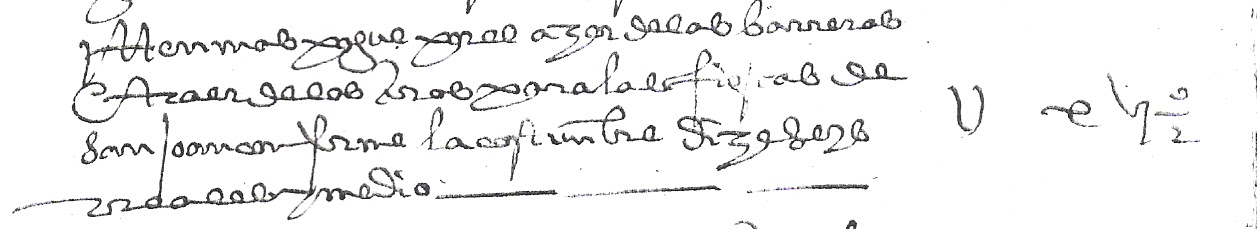 yten mas pague por el azer de las barreras
e traer de los toros para las fiestas de
san joan conforme la costumbre diez e seys
reales e medio